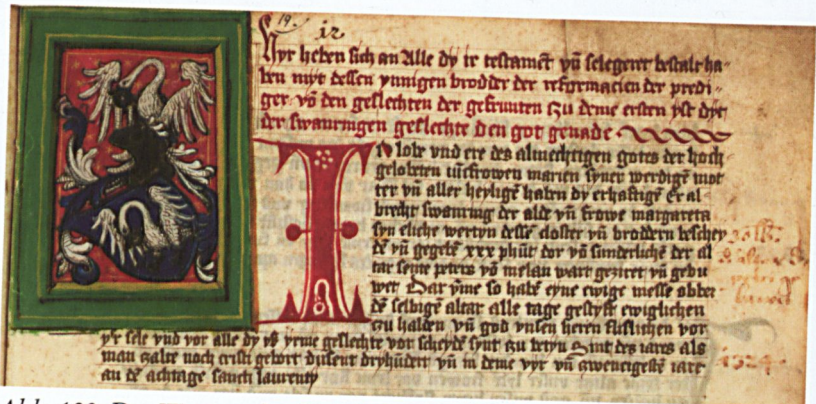 19. 12
Hyr heben sich an Alle dy ir testamēt vn̄ selegerer bestalt ha-
ben myt dessen ynnigen brodder der reformacien der predi-
ger vō den geslechten der gefrunten Czu deme ersten yst dyt
der swanringen geslechte den got genade
Tzv lobe vnd ere des almechtigen gotes der hoch
gelobeten iūcfrowen marien syner werdigē mot
ter vn̄ aller heyligē haben dy erhaftigē Er al
brecht swanring der alde vn̄ frowe margareta
syn eliche wertyn desse closter vn̄ broddern beschey
dē vn̄ gegebē xxx phūt dor vō sunderlichē der al
tar sente peters vō melan wart geziret vn̄ gebu
wet Dar vme so habē eyne ewige messe obber
dē selbigē altar alle tage gestyft ewiglichen
czu halden vn̄ god vnsen heren flislichen vor
yr sele vnd vor alle dy vs yrme geslechte vor scheydē synt czu betyn Synt des iares als
man zalte noch cristi gebort dusent dryhūdert vn̄ in deme vyr vn̄ zwencigestē iare
an dē achtage sancti laurenty
1324
Abb.